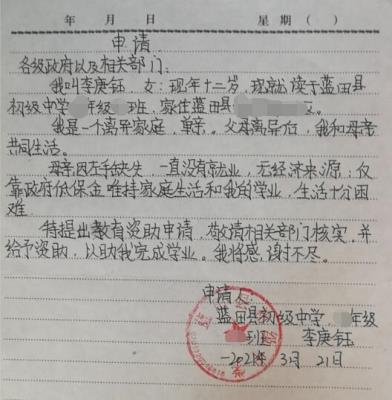 年 月 日 星 期 （ ）
申请
各级政府以及相关部门：
我叫李庚钰，女；现年十二岁，现就读于蓝田县
初级中学 年级 班，家住蓝田县
我是一个离异家庭，单亲。父母离异后，我和母亲
共同生活。
母亲因左手缺失，一直没有就业，无经济来源；仅
靠政府低保金维持家庭生活和我的学业，生活十分困
难
特提出教育资助申请，敬请相关部门核实，并
给予资助，以助我完成学业。我将感谢不尽。
申请人：
蓝田县初级中学， 年级
班 李庚钰
2021年3月21日